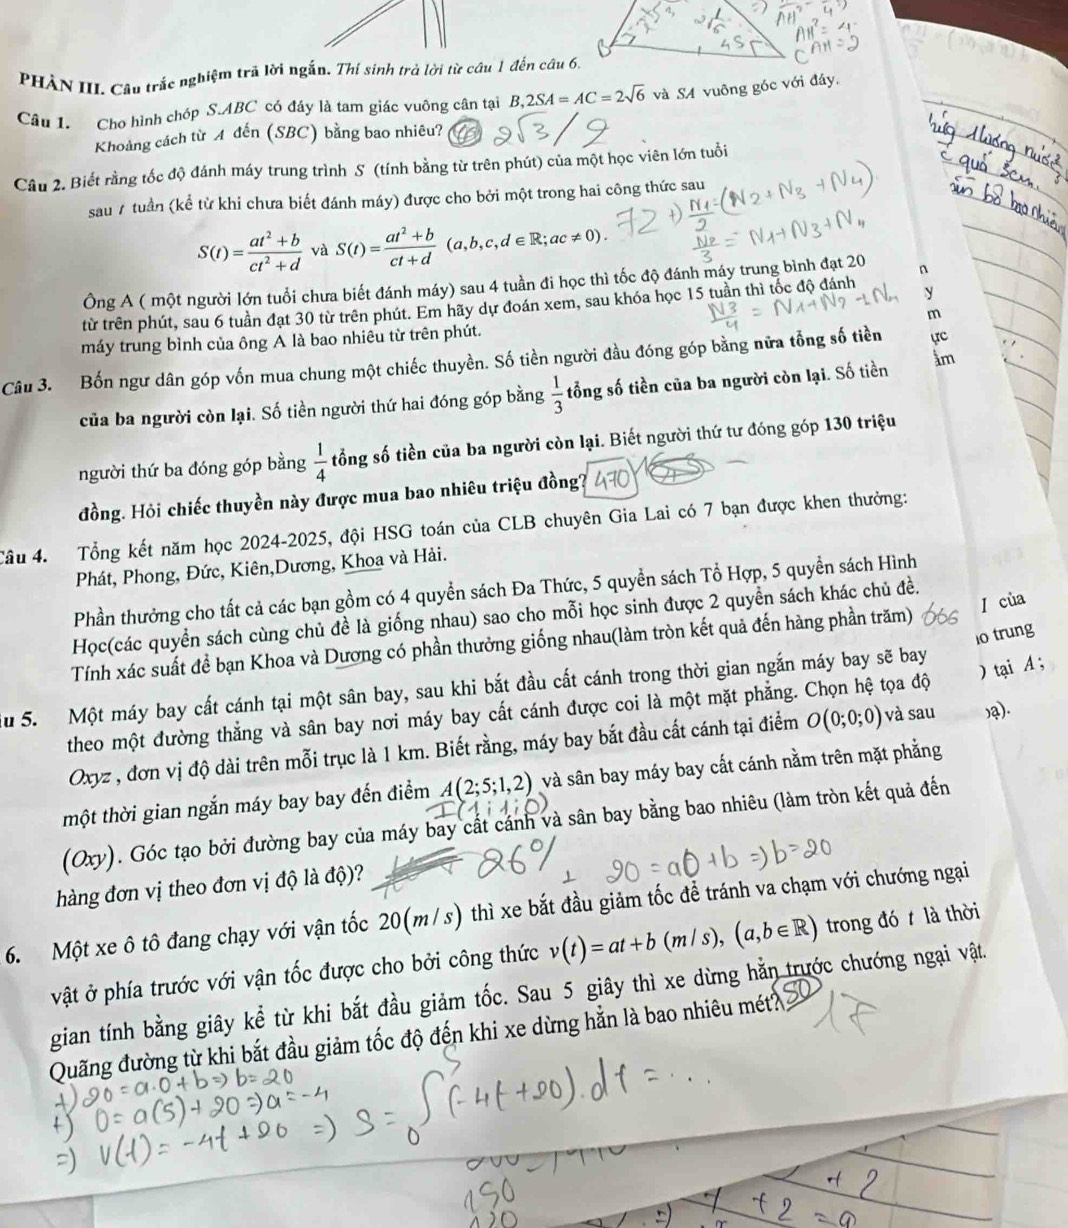 B
AH² = 4
C AH = 2
PHẦN III. Câu trắc nghiệm trả lời ngắn. Thí sinh trả lời từ câu 1 đến câu 6.
Câu 1. Cho hình chóp S.ABC có đáy là tam giác vuông cân tại B, 2SA = AC = 2√6 và SA vuông góc với đáy.
Khoảng cách từ A đến (SBC) bằng bao nhiêu? 2√3 / 2
Câu 2. Biết rằng tốc độ đánh máy trung trình S (tính bằng từ trên phút) của một học viên lớn tuổi
sau t tuần (kể từ khi chưa biết đánh máy) được cho bởi một trong hai công thức sau
S(t) = (at² + b)/(ct² + d) và S(t) = (at² + b)/(ct + d) (a,b,c,d ∈ ℝ; ac ≠ 0). 72
+) N1/2 = (N2 + N3 + N4)
N2/3 = N1 + N3 + N4
Ông A ( một người lớn tuổi chưa biết đánh máy) sau 4 tuần đi học thì tốc độ đánh máy trung bình đạt 20
từ trên phút, sau 6 tuần đạt 30 từ trên phút. Em hãy dự đoán xem, sau khóa học 15 tuần thì tốc độ đánh
máy trung bình của ông A là bao nhiêu từ trên phút.
N3/4 = N1 + N2 + N4
n
y
m
ực
ầm
Câu 3. Bốn ngư dân góp vốn mua chung một chiếc thuyền. Số tiền người đầu đóng góp bằng nửa tổng số tiền
của ba người còn lại. Số tiền người thứ hai đóng góp bằng 1/3 tổng số tiền của ba người còn lại. Số tiền
người thứ ba đóng góp bằng 1/4 tổng số tiền của ba người còn lại. Biết người thứ tư đóng góp 130 triệu
đồng. Hỏi chiếc thuyền này được mua bao nhiêu triệu đồng? 470
Câu 4. Tổng kết năm học 2024-2025, đội HSG toán của CLB chuyên Gia Lai có 7 bạn được khen thưởng:
Phát, Phong, Đức, Kiên,Dương, Khoa và Hải.
Phần thưởng cho tất cả các bạn gồm có 4 quyển sách Đa Thức, 5 quyển sách Tổ Hợp, 5 quyển sách Hình
Học(các quyển sách cùng chủ đề là giống nhau) sao cho mỗi học sinh được 2 quyển sách khác chủ đề.
Tính xác suất để bạn Khoa và Dương có phần thưởng giống nhau(làm tròn kết quả đến hàng phần trăm)
I của
ɔ trung
) tại A;
ɔạ).
u 5. Một máy bay cất cánh tại một sân bay, sau khi bắt đầu cất cánh trong thời gian ngắn máy bay sẽ bay
theo một đường thẳng và sân bay nơi máy bay cất cánh được coi là một mặt phẳng. Chọn hệ tọa độ
Oxyz , đơn vị độ dài trên mỗi trục là 1 km. Biết rằng, máy bay bắt đầu cất cánh tại điểm O(0;0;0) và sau
một thời gian ngắn máy bay bay đến điểm A(2;5;1,2) và sân bay máy bay cất cánh nằm trên mặt phẳng
I(1;1;0)
(Oxy). Góc tạo bởi đường bay của máy bay cất cánh và sân bay bằng bao nhiêu (làm tròn kết quả đến
hàng đơn vị theo đơn vị độ là độ)? 26%
20 = a0 + b => b = 20
6. Một xe ô tô đang chạy với vận tốc 20(m/s) thì xe bắt đầu giảm tốc để tránh va chạm với chướng ngại
vật ở phía trước với vận tốc được cho bởi công thức v(t) = at + b (m/s), (a,b ∈ ℝ) trong đó t là thời
gian tính bằng giây kể từ khi bắt đầu giảm tốc. Sau 5 giây thì xe dừng hẳn trước chướng ngại vật.
Quãng đường từ khi bắt đầu giảm tốc độ đến khi xe dừng hẳn là bao nhiêu mét? 50
+) 20 = a.0 + b => b = 20
+) 0 = a(5) + 20 => a = -4
=> v(t) = -4t + 20 => S = ∫₀⁵ (-4t + 20).dt = ...
150
+ 2
+ 2 = 9